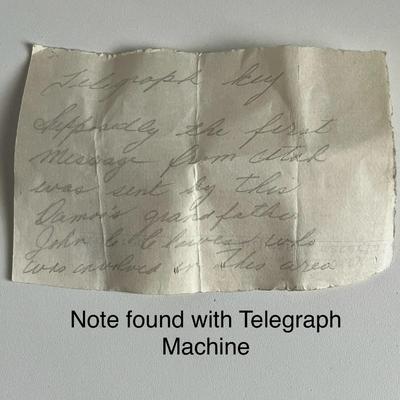 Telegraph key
Supposedly the first
message from Utah
was sent by this
grandfather
John who
was involved in this area
Note found with Telegraph
Machine